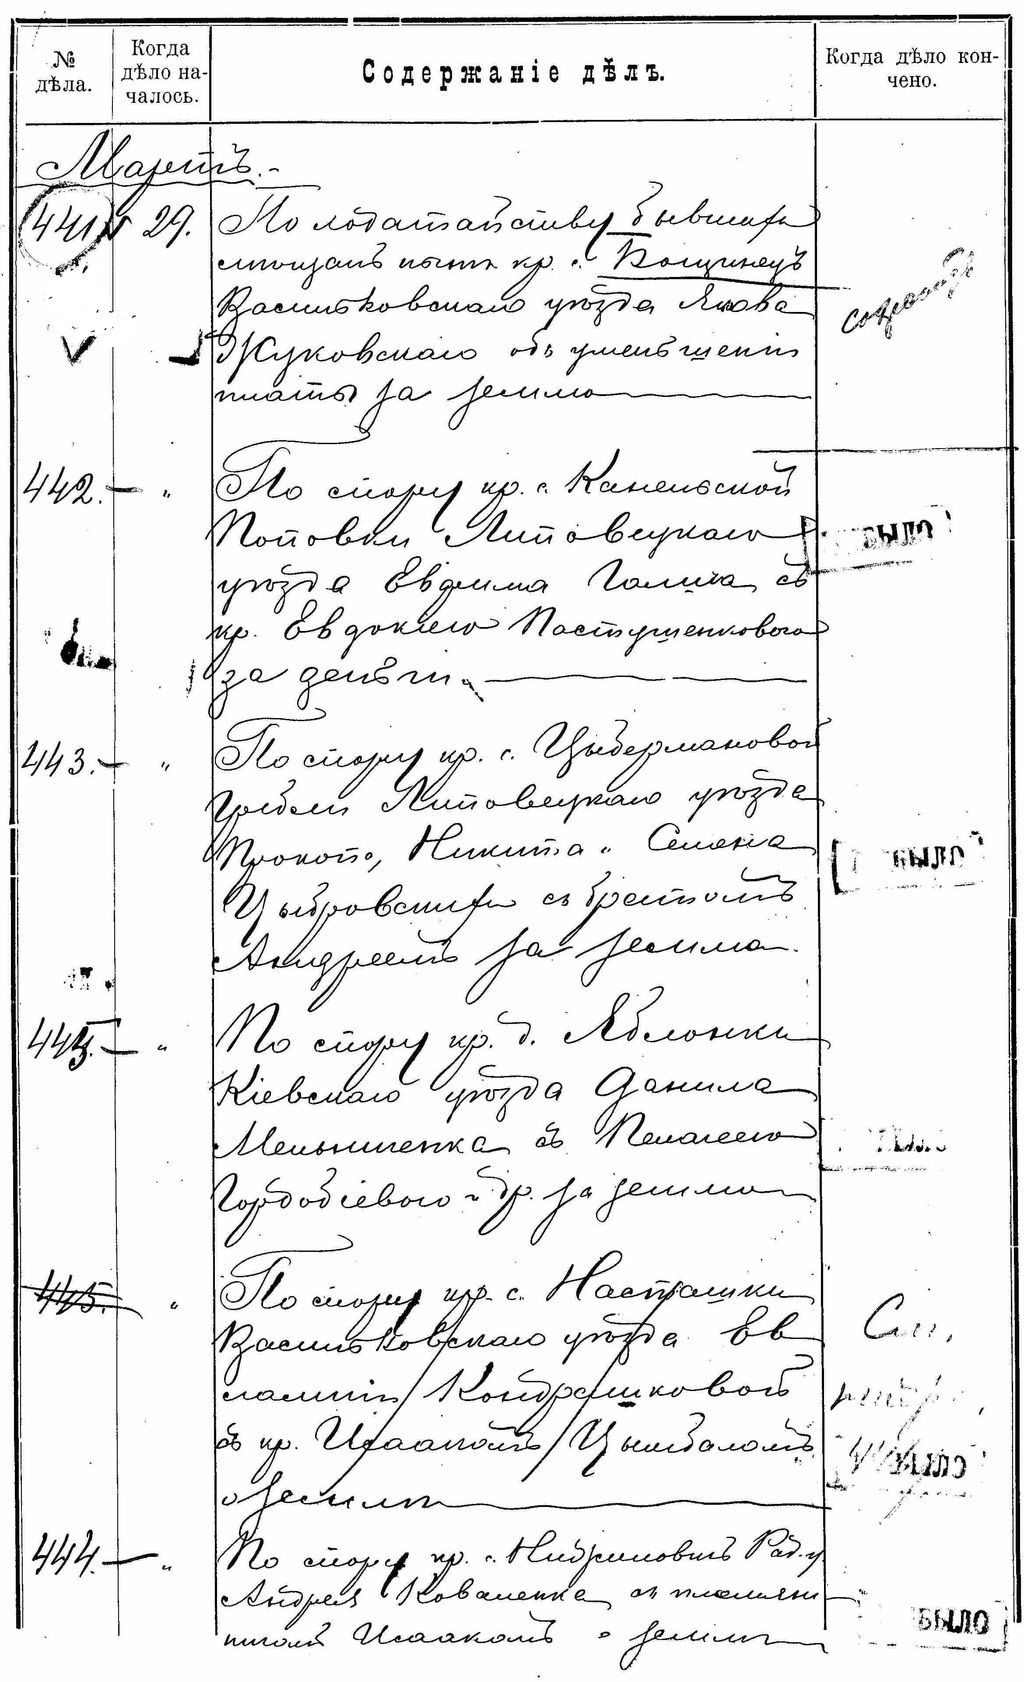 № дѣла.
Когда дѣло на-
чалось.
Содержаніе дѣлъ.
Когда дѣло кон-
чено.
Мартъ.
441 29. По ходатайству бывшихъ
кр. с.
Васильковскаго уѣзда Якова
Жуковскаго объ уменьшеніи
платы за землю
442. — " По спору кр. с. Канельской
Поповки Липовецкаго
уѣзда Евфима Галича съ
кр. Евдокіею Пастушенковою
за деньги.
было
443. — " По спору кр. с. Цыбермановой
Гребли Липовецкаго уѣзда
Прокопа, Никита и Семена
Цыбровскихъ съ братомъ
Андреемъ за землю.
было
— " По спору кр. д. Яблонки
Кіевскаго уѣзда Данила
Мельниченка съ Пелагеею
и др. за землю
445. " По спору кр. с. Насташки
Васильковскаго уѣзда Ев
лампіи Кондрашковой
съ кр. Исаакомъ Цымбаломъ
о землѣ
было
444. — " По спору кр. с.
Андрея Коваленка съ племян
никомъ Исаакомъ о землѣ
было